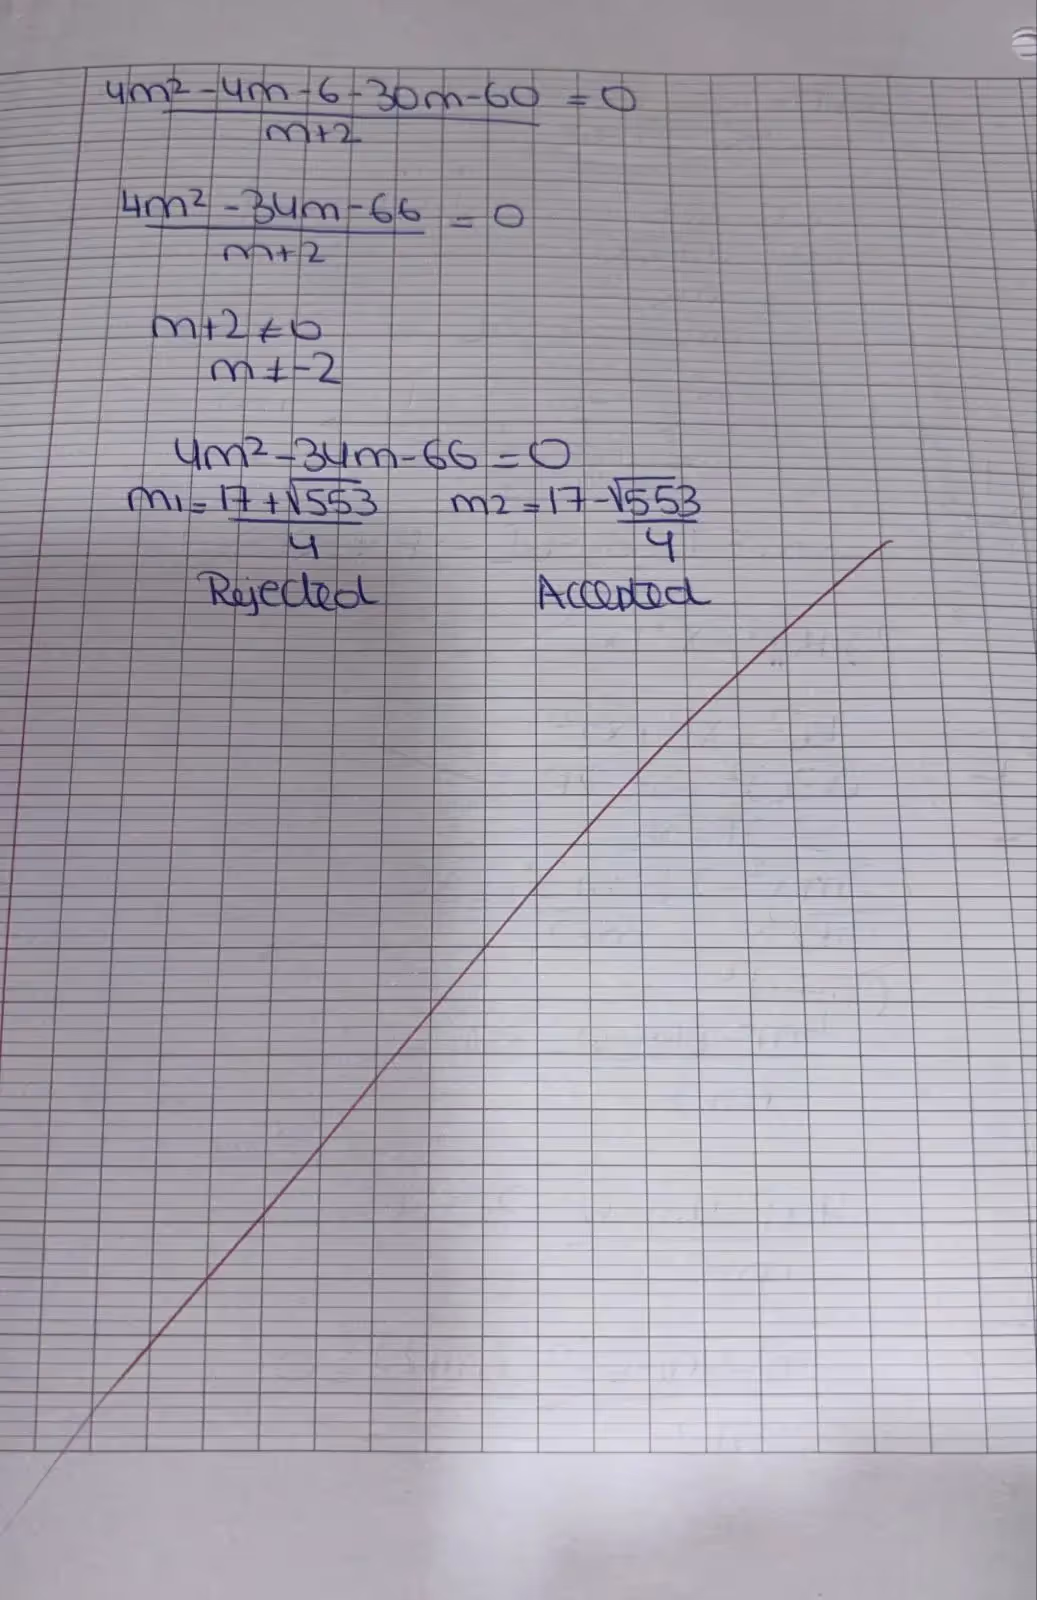 4m² - 4m - 6 - 30m - 60 = 0
m+2
4m² - 34m - 66 = 0
m+2
m+2 ≠ 0
m ≠ -2
4m² - 34m - 66 = 0
m1 = 17 + √553 m2 = 17 - √553
4 4
Rejected Accepted